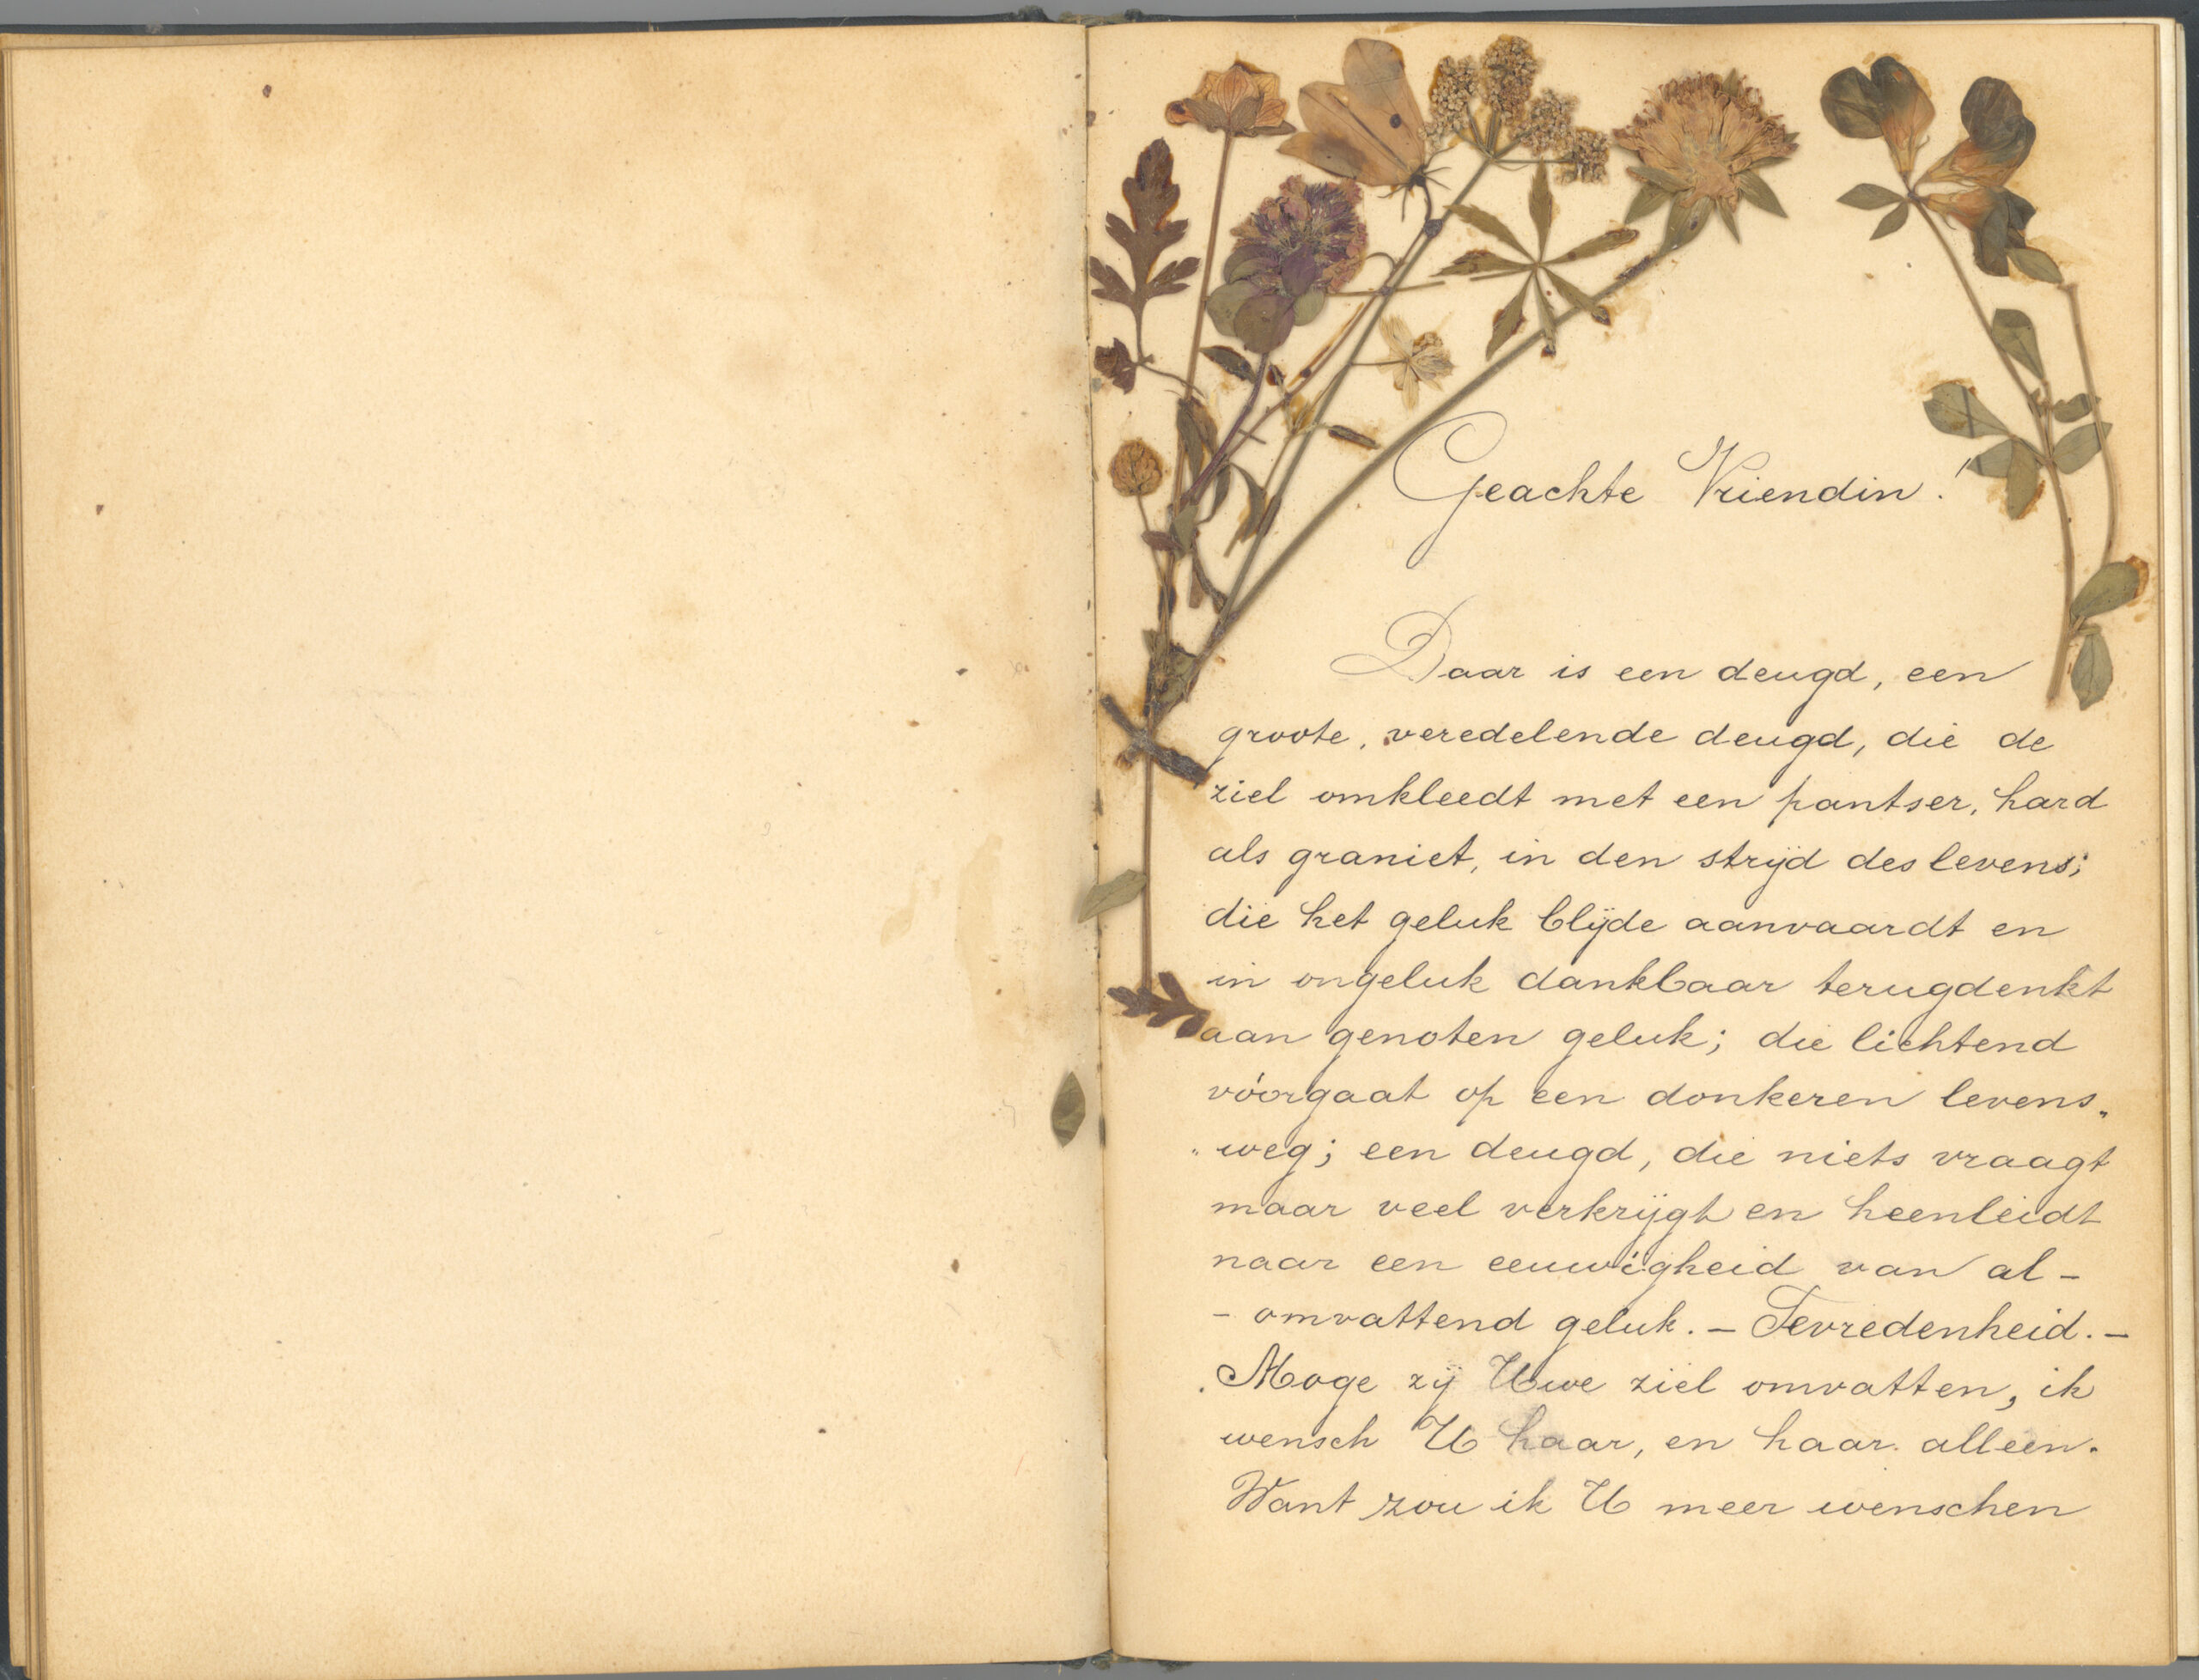 Geachte Vriendin!
Daar is een deugd, een
groote, veredelende deugd, die de
ziel omkleedt met een pantser, hard
als graniet, in den strijd des levens;
die het geluk blijde aanvaardt en
in ongeluk dankbaar terugdenkt
aan genoten geluk; die lichtend
vóorgaat op een donkeren levens„
„weg; een deugd, die niets vraagt
maar veel verkrijgt en heenleidt
naar een eeuwigheid van al-
- omvattend geluk. - Tevredenheid. -
Moge zij Uwe ziel omvatten, ik
wensch U haar, en haar alleen.
Want zou ik U meer wenschen